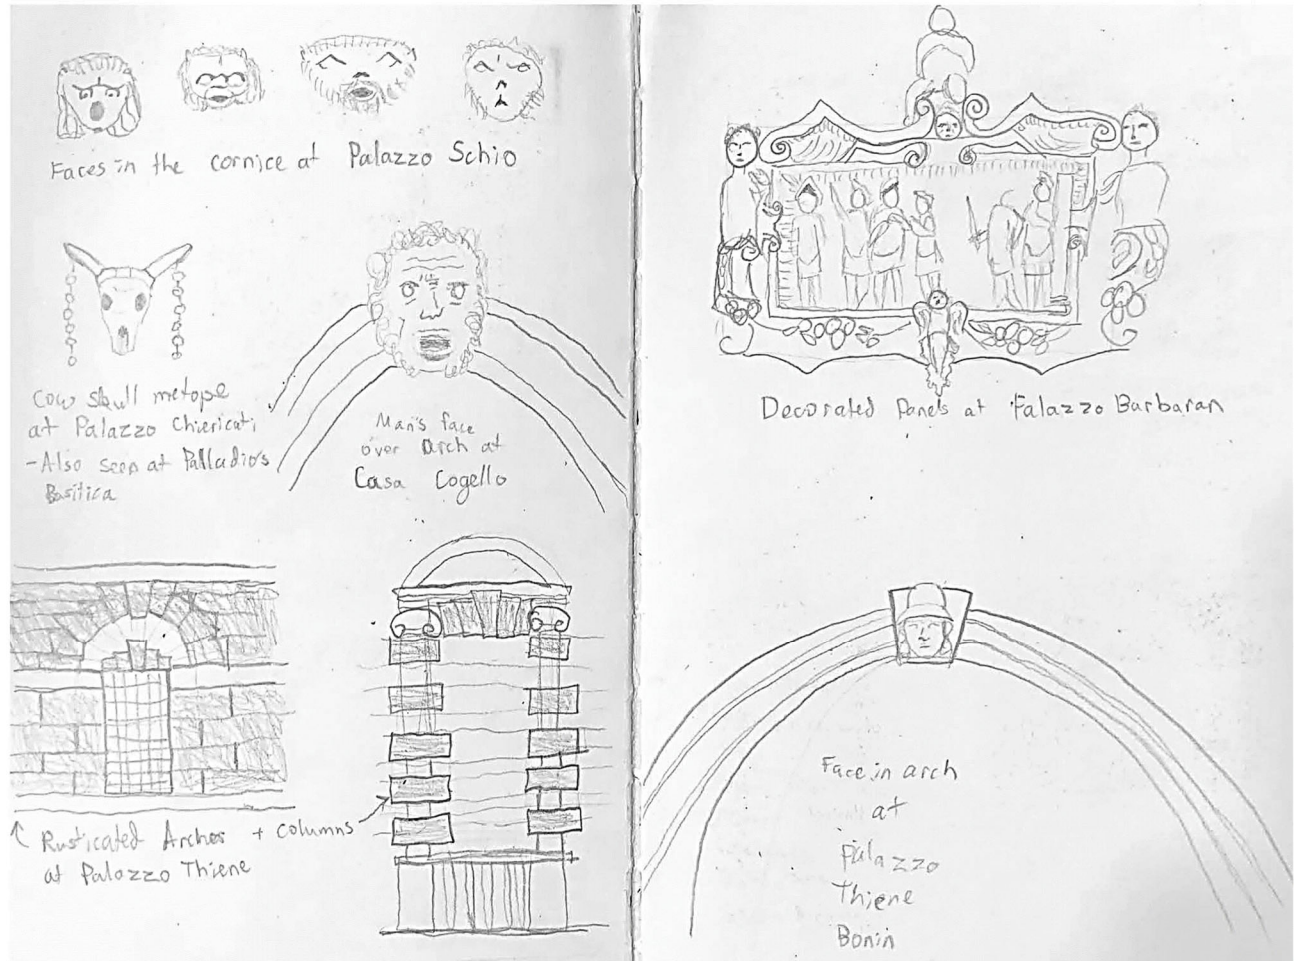 Faces in the cornice at Palazzo Schio
Cow skull metope
at Palazzo Chiericati
-Also seen at Palladio's
Basilica
Man's face
over arch at
Casa Cogello
↑ Rusticated Arches + columns
at Palazzo Thiene
Decorated Panels at Palazzo Barbaran
Face in arch
at
Palazzo
Thiene
Bonin